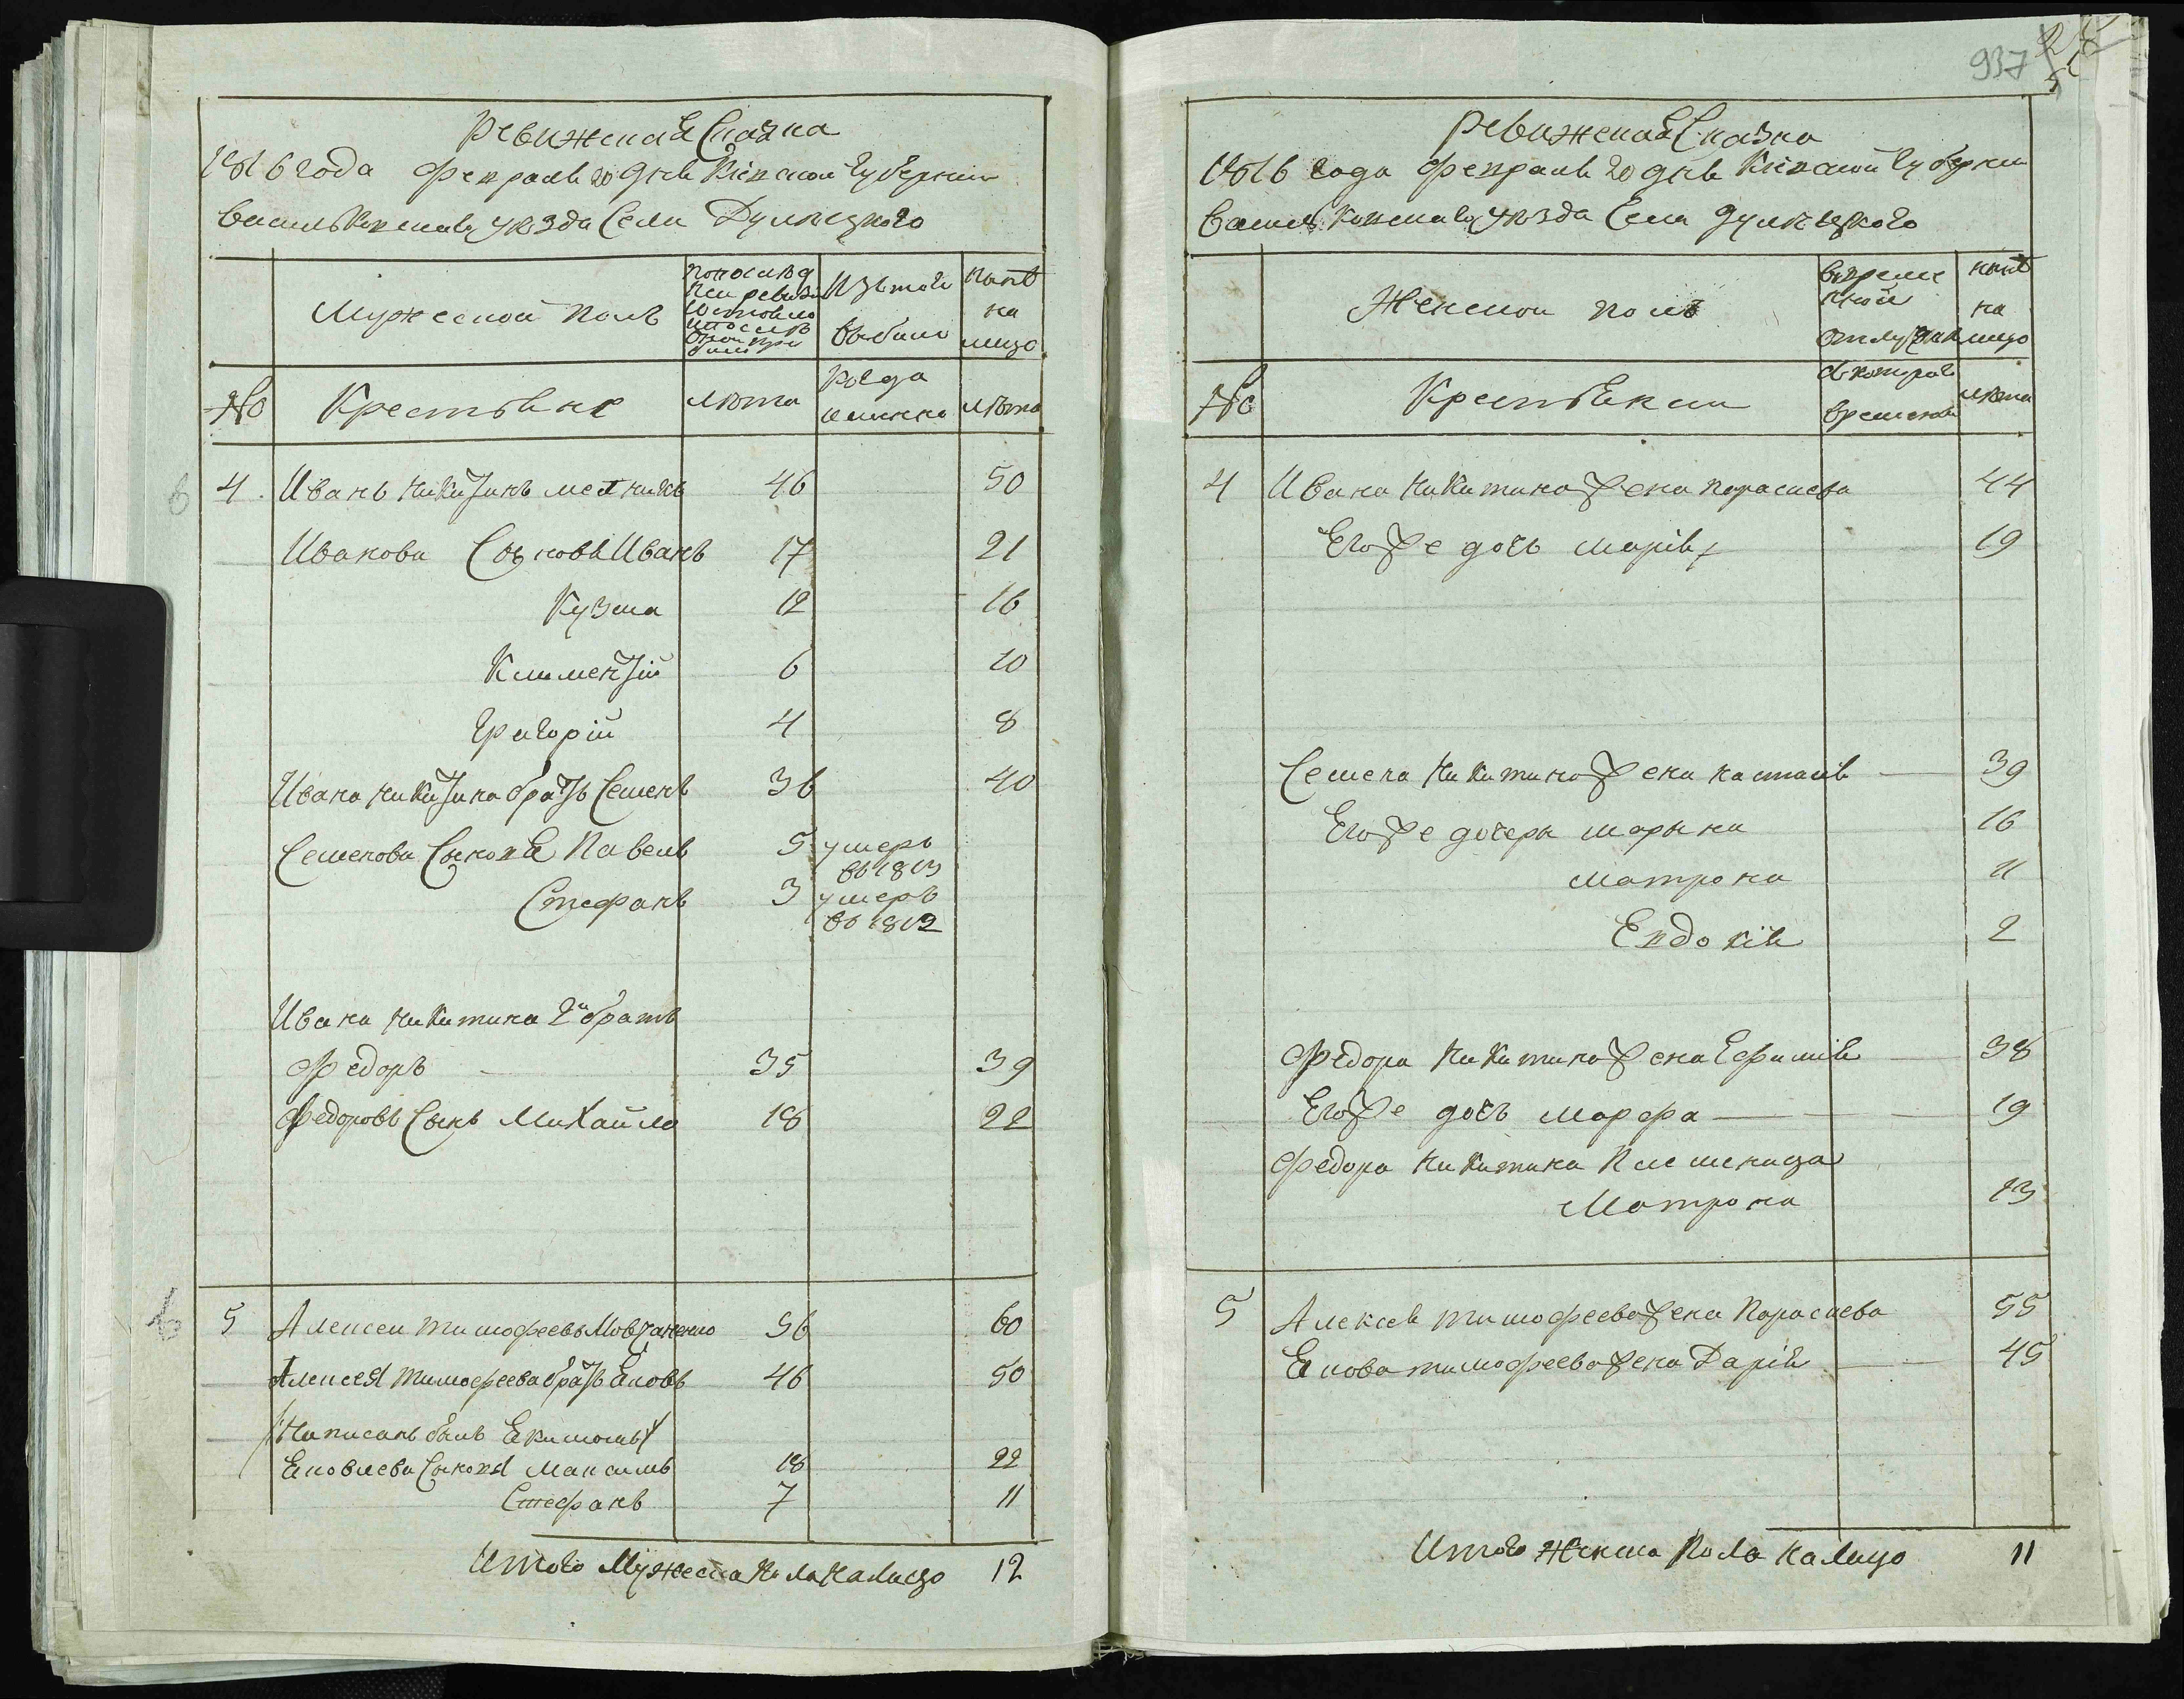 Ревижская Сказка
1816 года Февраля 20 дня Кіевской Губерніи
Васильковскаго уѣзда Села Дулицкого
Мужеской полъ
по послѣд
ней ревизіи
состояло
и послѣ
оной при
было
Изъ того
выбыло
нынѣ
на
лицо
№
Крестьяне
лѣта
когда
именно
лѣта
4
Иванъ Никитинъ
46
50
Иванова Сыновя Иванъ
17
21
Кузма
12
16
Климентій
6
10
Григорій
4
8
Ивана Никитина братъ Семенъ
36
40
Семенова Сыновя Павелъ
5
умеръ
въ 1813
Стефанъ
3
умеръ
въ 1812
Ивана Никитина 2й братъ
Федоръ
35
39
Федоровъ Сынъ Михайло
18
22
5
Алексей Тимофеевъ Мовчаненко
56
60
Алексея Тимофеева братъ Яковъ
46
50
Написанъ былъ Екимомъ
Яковлева Сыновя Максимъ
18
22
Стефанъ
7
11
Итого Мужеска пола налицо 12
937
Ревижская Сказка
1816 года Февраля 20 дня Кіевской Губерніи
Васильковскаго уѣзда Села Дулицкого
Женской полъ
во време
нной
отлучки
нынѣ
на
лицо
№
Крестьянки
съ котораго
времени
лѣта
4
Ивана Никитина жена Парасцева
44
Его же дочь Марія
19
Семена Никитина жена Настасія
39
Его же дочери Марына
16
Матрона
11
Евдокія
2
Федора Никитина жена Ефимія
38
Его же дочь Марфа
19
Федора Никитина племеница
Матрона
13
5
Алексея Тимофеева жена Парасцева
55
Якова Тимофеева жена Дарія
45
Итого Женска пола налицо 11